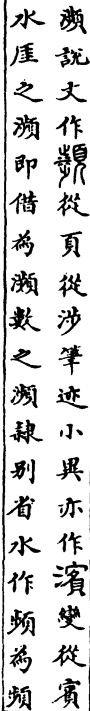 瀕說文作從頁從涉筆迹小異亦作濱變從賓
水厓之瀕即借為瀕數之瀕隸別省水作頻為頻